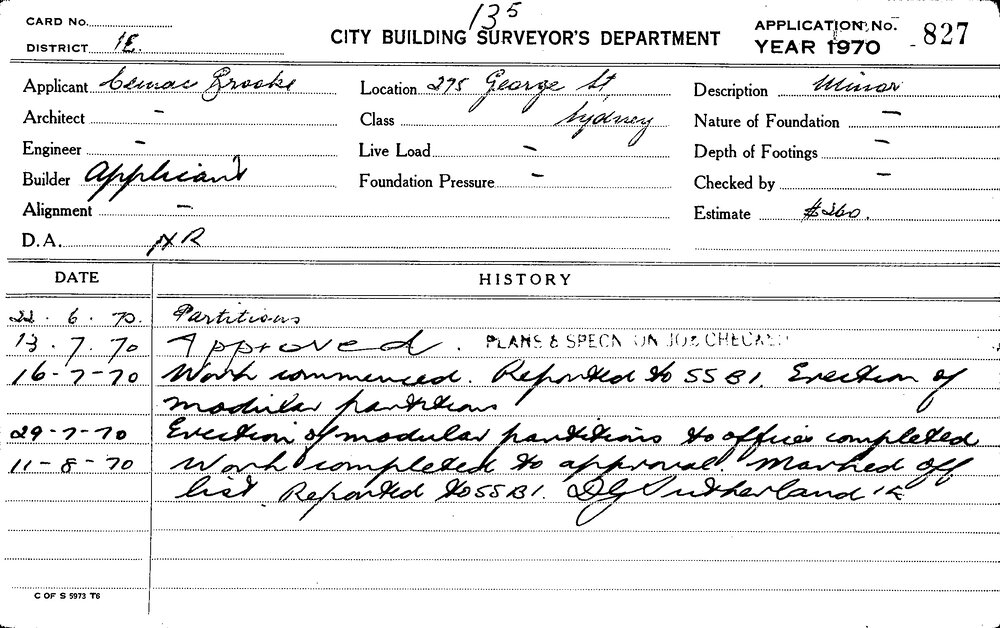 135
CARD No.
APPLICATION No. 827
DISTRICT 1E.
CITY BUILDING SURVEYOR'S DEPARTMENT
YEAR 1970
Applicant Cemac Brooks
Location 275 George St,
Description Minor
Architect -
Class Sydney
Nature of Foundation -
Engineer -
Live Load -
Depth of Footings -
Builder Applicant
Foundation Pressure -
Checked by -
Alignment -
Estimate $260.
D.A. NR
DATE HISTORY
22.6.70. Partitions
13.7.70 Approved. PLANS & SPECN ON JOB CHECKED
16-7-70 Work commenced. Reported to SSBI. Erection of
modular partitions
29-7-70 Erection of modular partitions to offices completed
11-8-70 Work completed to approval. Marked off
list. Reported to SSBI. DG Sutherland 1E
C OF S 5973 T6